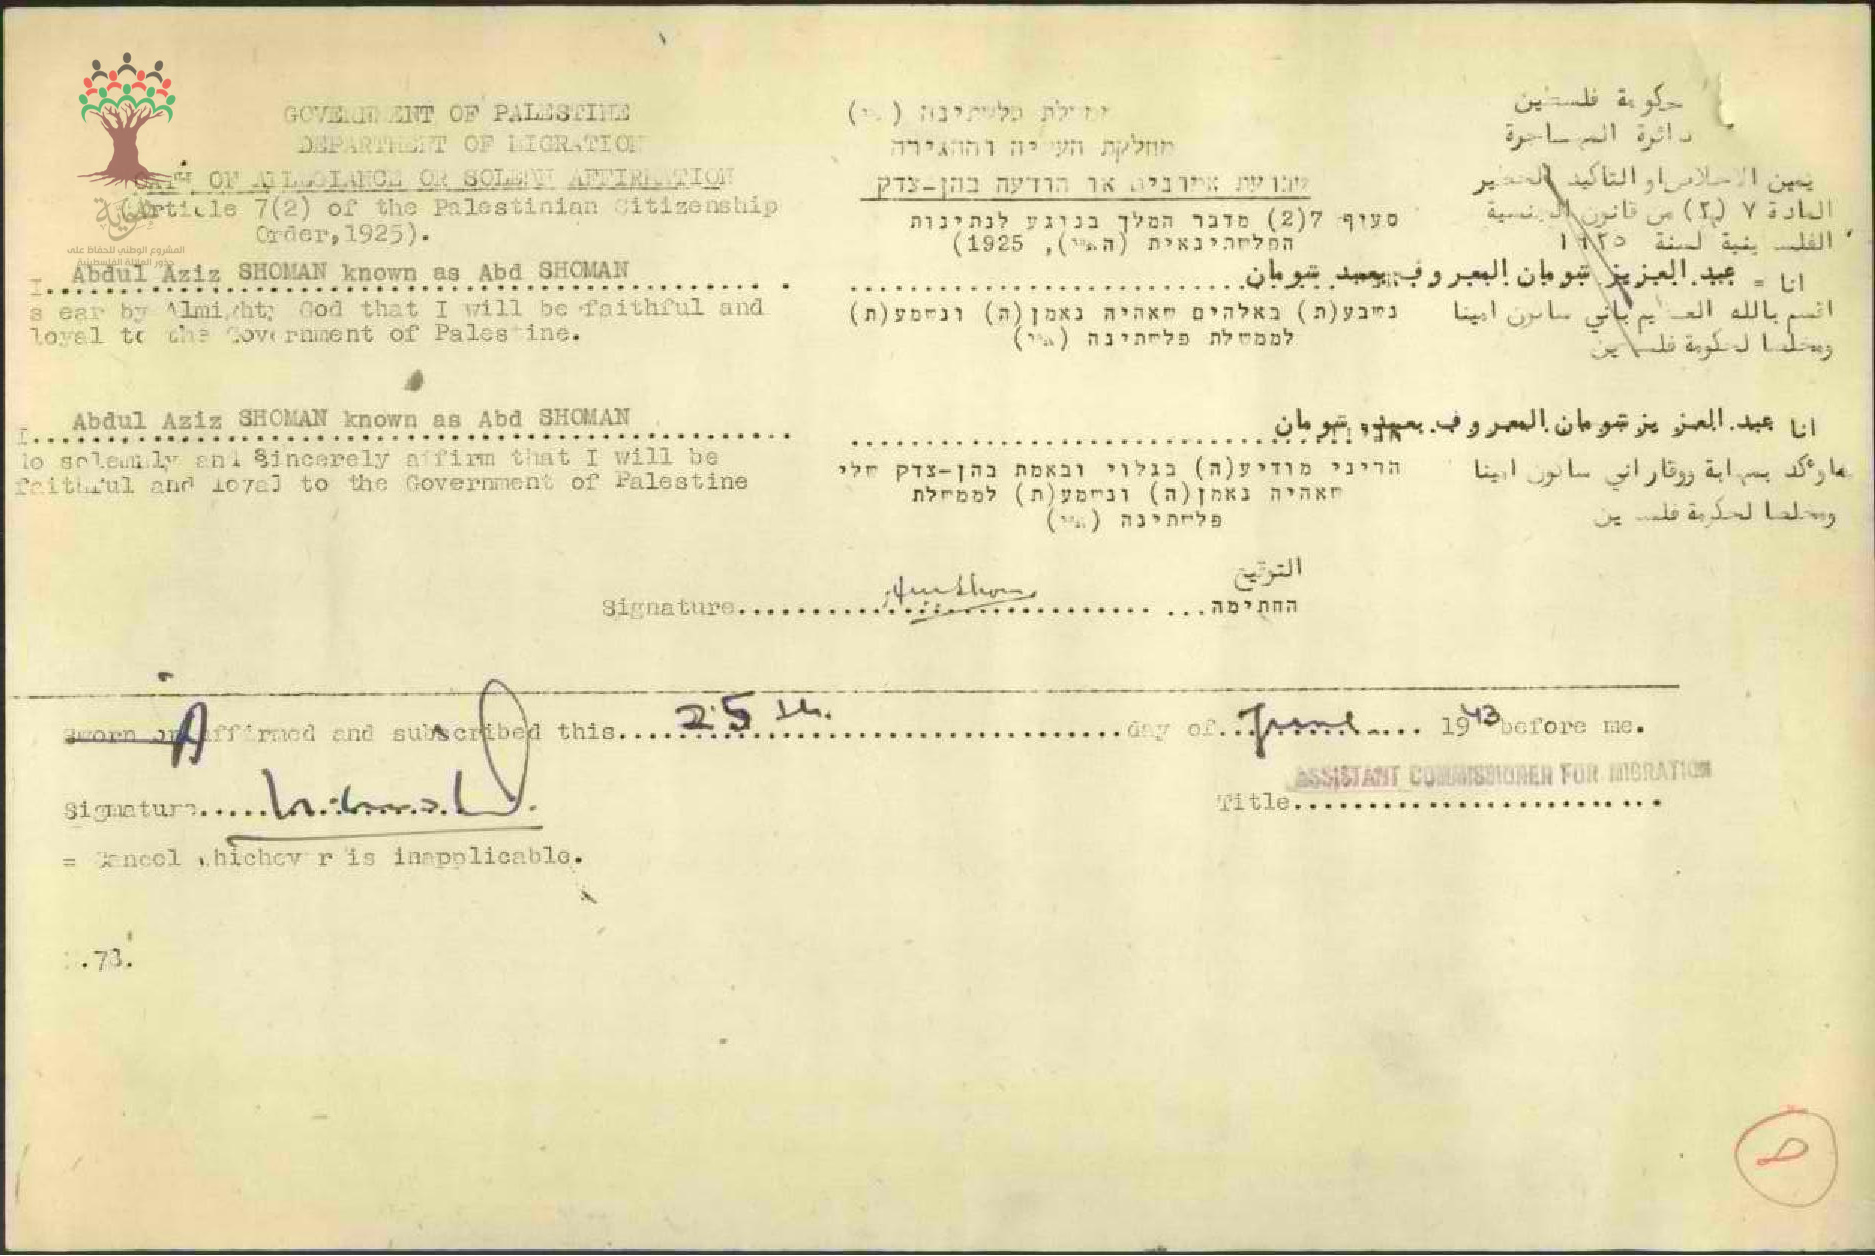 GOVERNMENT OF PALESTINE
DEPARTMENT OF MIGRATION
OATH OF ALLEGIANCE OR SOLEMN AFFIRMATION
(Article 7(2) of the Palestinian Citizenship
Order,1925).
I. Abdul Aziz SHOMAN known as Abd SHOMAN
swear by Almighty God that I will be faithful and
loyal to the Government of Palestine.
I. Abdul Aziz SHOMAN known as Abd SHOMAN
do solemnly and Sincerely affirm that I will be
faithful and loyal to the Government of Palestine
ממשלת פלשתינה (א״י)
מחלקת העליה וההגירה
שבועת אמונים או הודעה בהן-צדק
סעיף 7(2) מדבר המלך בנוגע לנתינות
הפלשתינאית (הא״י), 1925)
נשבע(ת) באלהים שאהיה נאמן(ה) ונשמע(ת)
לממשלת פלשתינה (א״י)
הריני מודיע(ה) בגלוי ובאמת בהן-צדק שלי
שאהיה נאמן(ה) ונשמע(ת) לממשלת
פלשתינה (א״י)
حكومة فلسطين
دائرة المهاجرة
يمين الاخلاص او التاكيد الخطير
المادة ٧ (٢) من قانون الجنسية
الفلسطينية لسنة ١٩٢٥
انا = عبد العزيز شومان المعروف بعبد شومان
اقسم بالله العظيم باني ساكون امينا
ومخلصا لحكومة فلسطين
انا عبد العزيز شومان المعروف بعبد شومان
اوكد بمهابة ووقار اني ساكون امينا
ومخلصا لحكومة فلسطين
التوقيع
Signature.......... החתימה
Sworn or Affirmed and subscribed this 25th. day of June 1943 before me.
ASSISTANT COMMISSIONER FOR MIGRATION
Signature.......... Title..........
= Cancel whichever is inapplicable.
.73.
هوية
المشروع الوطني للحفاظ على
جذور العائلة الفلسطينية